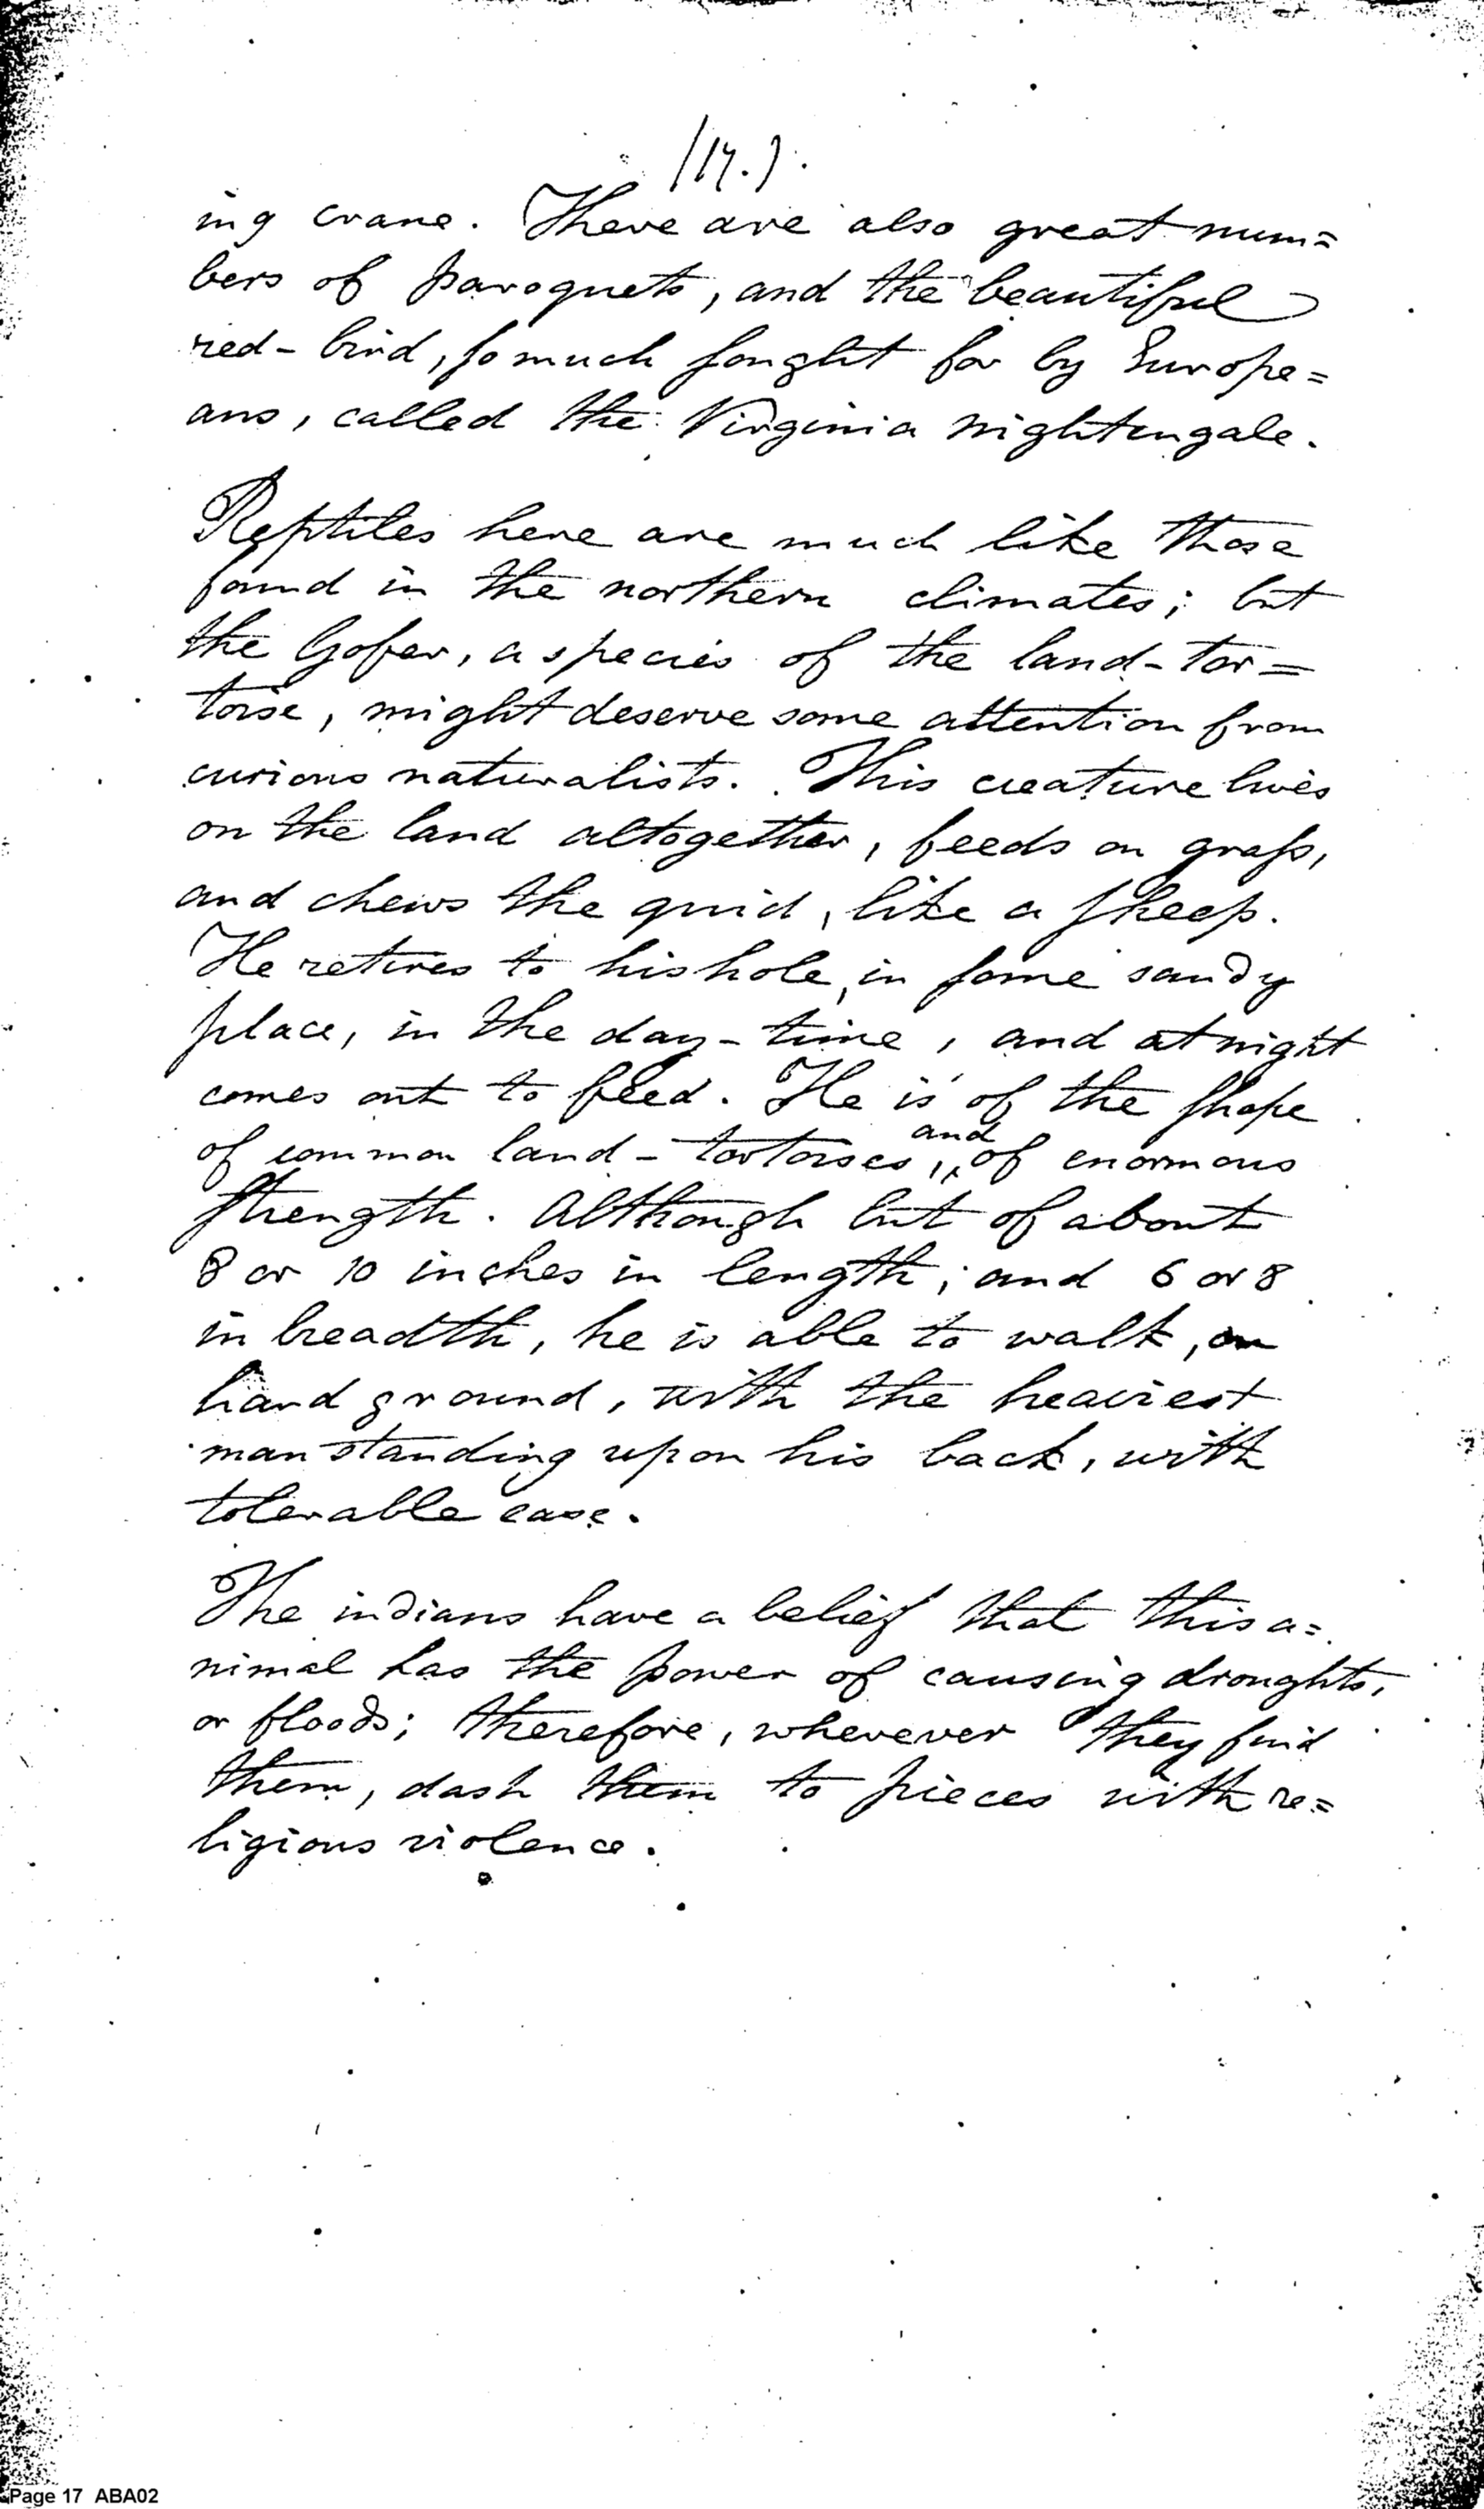 (17.).
ing crane. There are also great num=
bers of paroquets, and the beautiful
red-bird, so much sought for by Europe=
ans, called the Virginia nightengale.
Reptiles here are much like those
found in the northern climates; but
the Gofer, a species of the land-tor=
toise, might deserve some attention from
curious naturalists. This creature lives
on the land altogether, feeds on grass,
and chews the quid, like a sheep.
He retires to his hole, in some sandy
place, in the day-time, and at night
comes out to feed. He is of the shape
of common land-tortoises, and of enormous
strength. Although but of about
8 or 10 inches in length; and 6 or 8
in breadth, he is able to walk, on
hard ground, with the heaviest
man standing upon his back, with
tolerable ease.
The indians have a belief that this a=
nimal has the power of causing droughts,
or floods; therefore, wherever they find
them, dash them to pieces with re=
ligious violence.
Page 17 ABA02